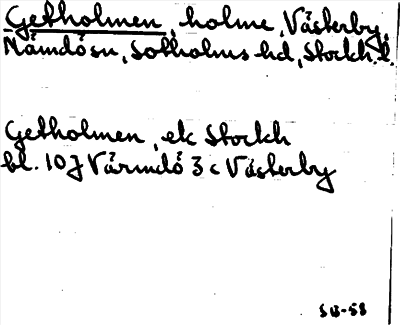 Getholmen, holme, Västerby,
Nämdö sn, Sotholms hd, Stockh. l.
Getholmen, ek Stockh
bl. 10J Värmdö 3 c Västerby
SB-58